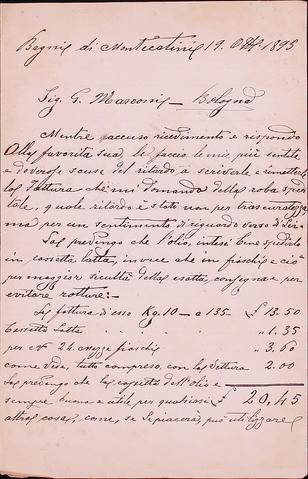 Bagni di Montecatini 19. Ott. 1895
Sig. G. Marconi – Bologna
Mentre accuso ricevimento e rispondo
Alla favorita sua, le faccio le mie più sentite
e doverose scuse del ritardo a scriverle e rimetterle
la fattura che mi domanda della roba spedi
tale, quale ritardo è stato non per trascuratezza
ma per un sentimento di riguardo verso di Lei.
La prevengo che l'olio, intesi bene spedirlo
in cassetta latta, invece che in fiaschi e ciò
per maggior sicurtà della esatta consegna e per
evitare rotture:–
La fattura di esso Kg. 10 – a 135 – £ 13.50
Cassetta Latta „ 1.35
per 24 mezze fiaschi „ 3.60
come Vede, tutto compreso, con la vettura 2.00
La prevengo che la cassetta dell'olio è
sempre buona e utile per qualsiasi £ 20,45
altra cosa, come, se Le piacerà, può utilizzare